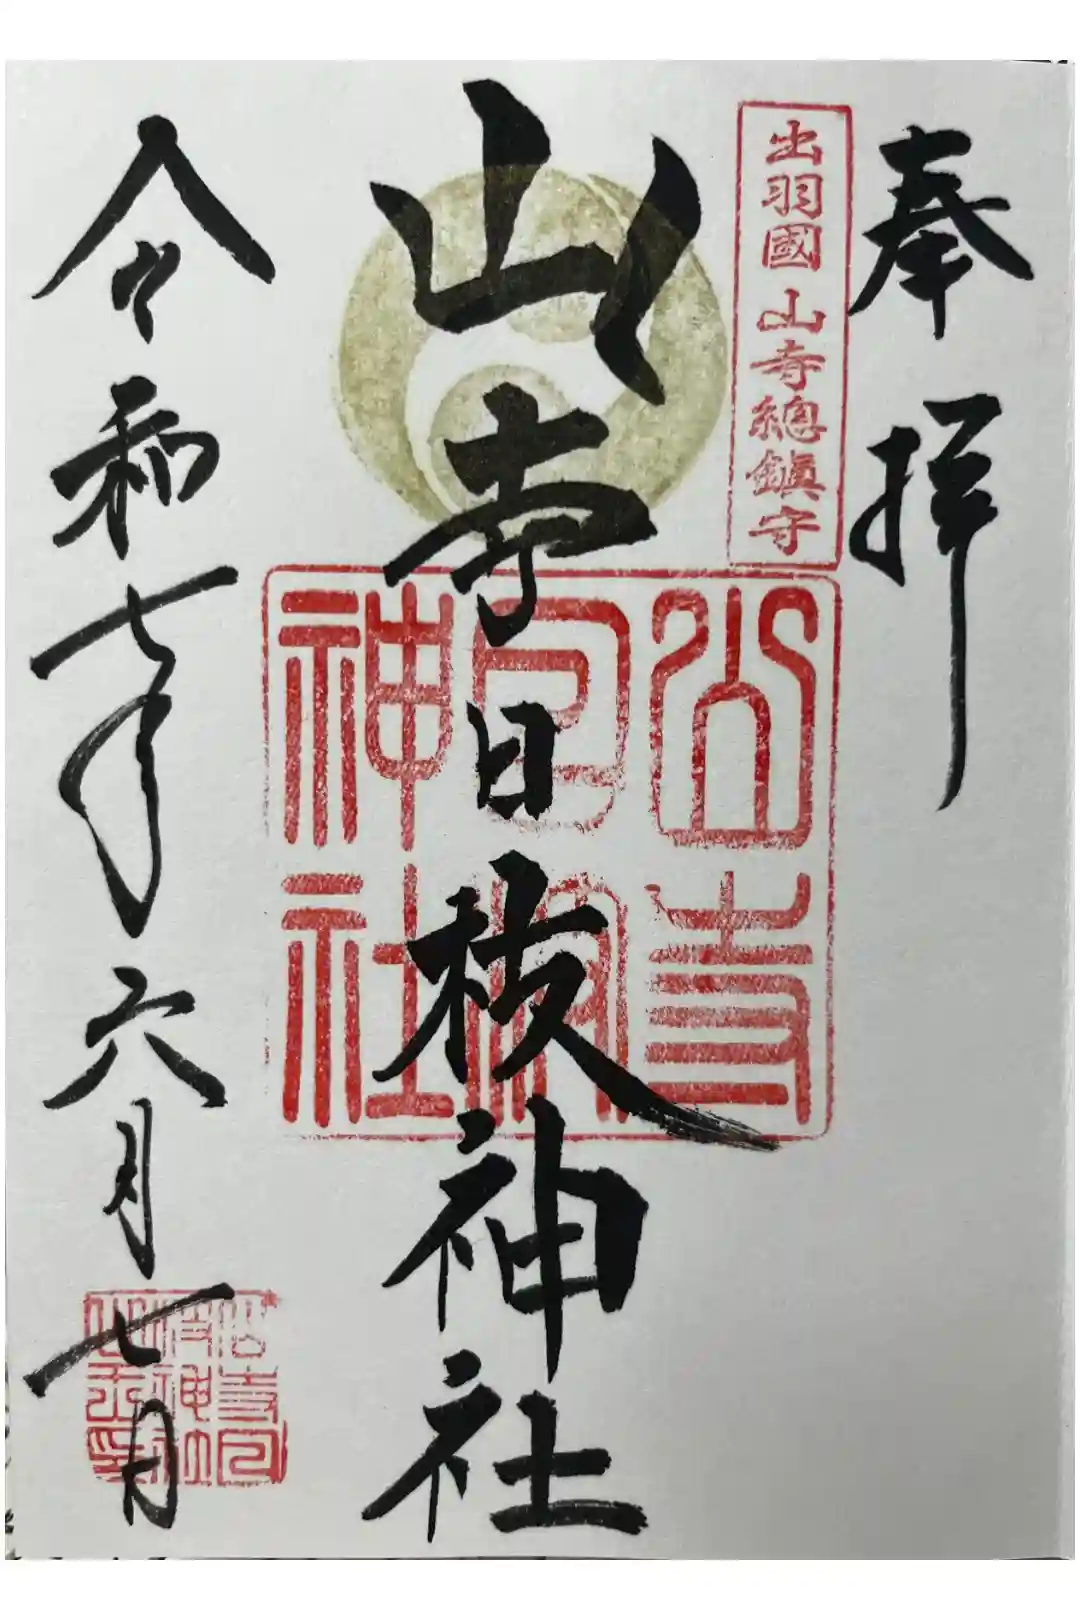 奉拝
出羽國 山寺總鎮守
山寺日枝神社
山寺
日枝
神社
令和七年六月七日